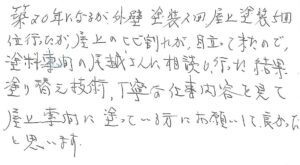 築20年になるが外壁塗装2回、屋上塗装5回
位行ったが、屋上のヒビ割れが、目立って来たので、
塗料専門の足越さんに相談し行た結果
塗り替え技術、丁寧な仕事内容を見て
屋上専門に塗っている方にお願いして良かった
と思います。